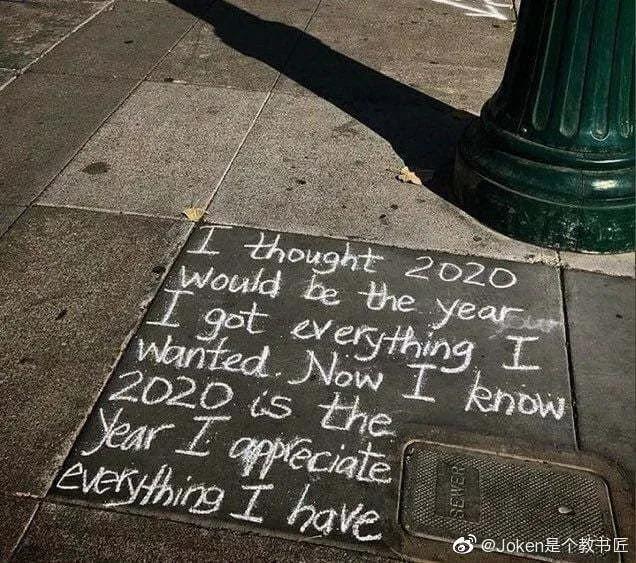 I thought 2020
would be the year
I got everything I
wanted. Now I know
2020 is the
year I appreciate
everything I have
SEWER
@Joken是个教书匠